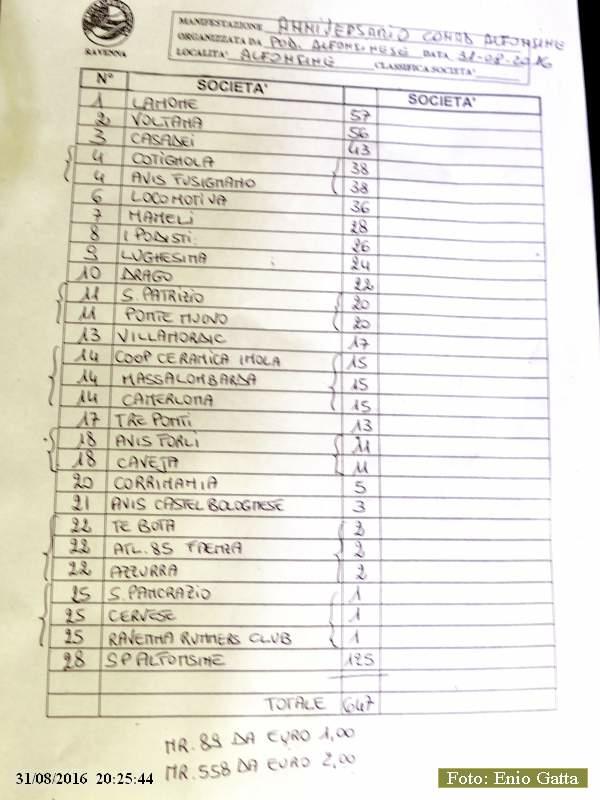 RAVENNA
MANIFESTAZIONE ANNIVERSARIO CONAD ALFONSINE
ORGANIZZATA DA POD. ALFONSINESE DATA 31-08-2016
LOCALITA' ALFONSINE CLASSIFICA SOCIETA'
N° SOCIETA' SOCIETA'
1 LAMONE 57
2 VOLTANA 56
3 CASADEI 43
4 COTIGNOLA 38
4 AVIS FUSIGNANO 38
6 LOCOMOTIVA 36
7 MAMELI 28
8 I PODISTI 26
9 LUGHESINA 24
10 DRAGO 22
11 S. PATRIZIO 20
11 PONTE NUOVO 20
13 VILLANORDIC 17
14 COOP CERAMICA IMOLA 15
14 MASSALOMBARDA 15
14 CAMERLONA 15
17 TRE PONTI 13
18 AVIS FORLI 11
18 CAVEJA 11
20 CORRIMANIA 5
21 AVIS CASTEL BOLOGNESE 3
22 TE BOTA 2
22 ATL. 85 FAENZA 2
22 AZZURRA 2
25 S. PANCRAZIO 1
25 CERVESE 1
25 RAVENNA RUNNERS CLUB 1
28 SP ALFONSINE 125
TOTALE 647
NR. 89 DA EURO 1,00
NR. 558 DA EURO 2,00
31/08/2016 20:25:44
Foto: Enio Gatta